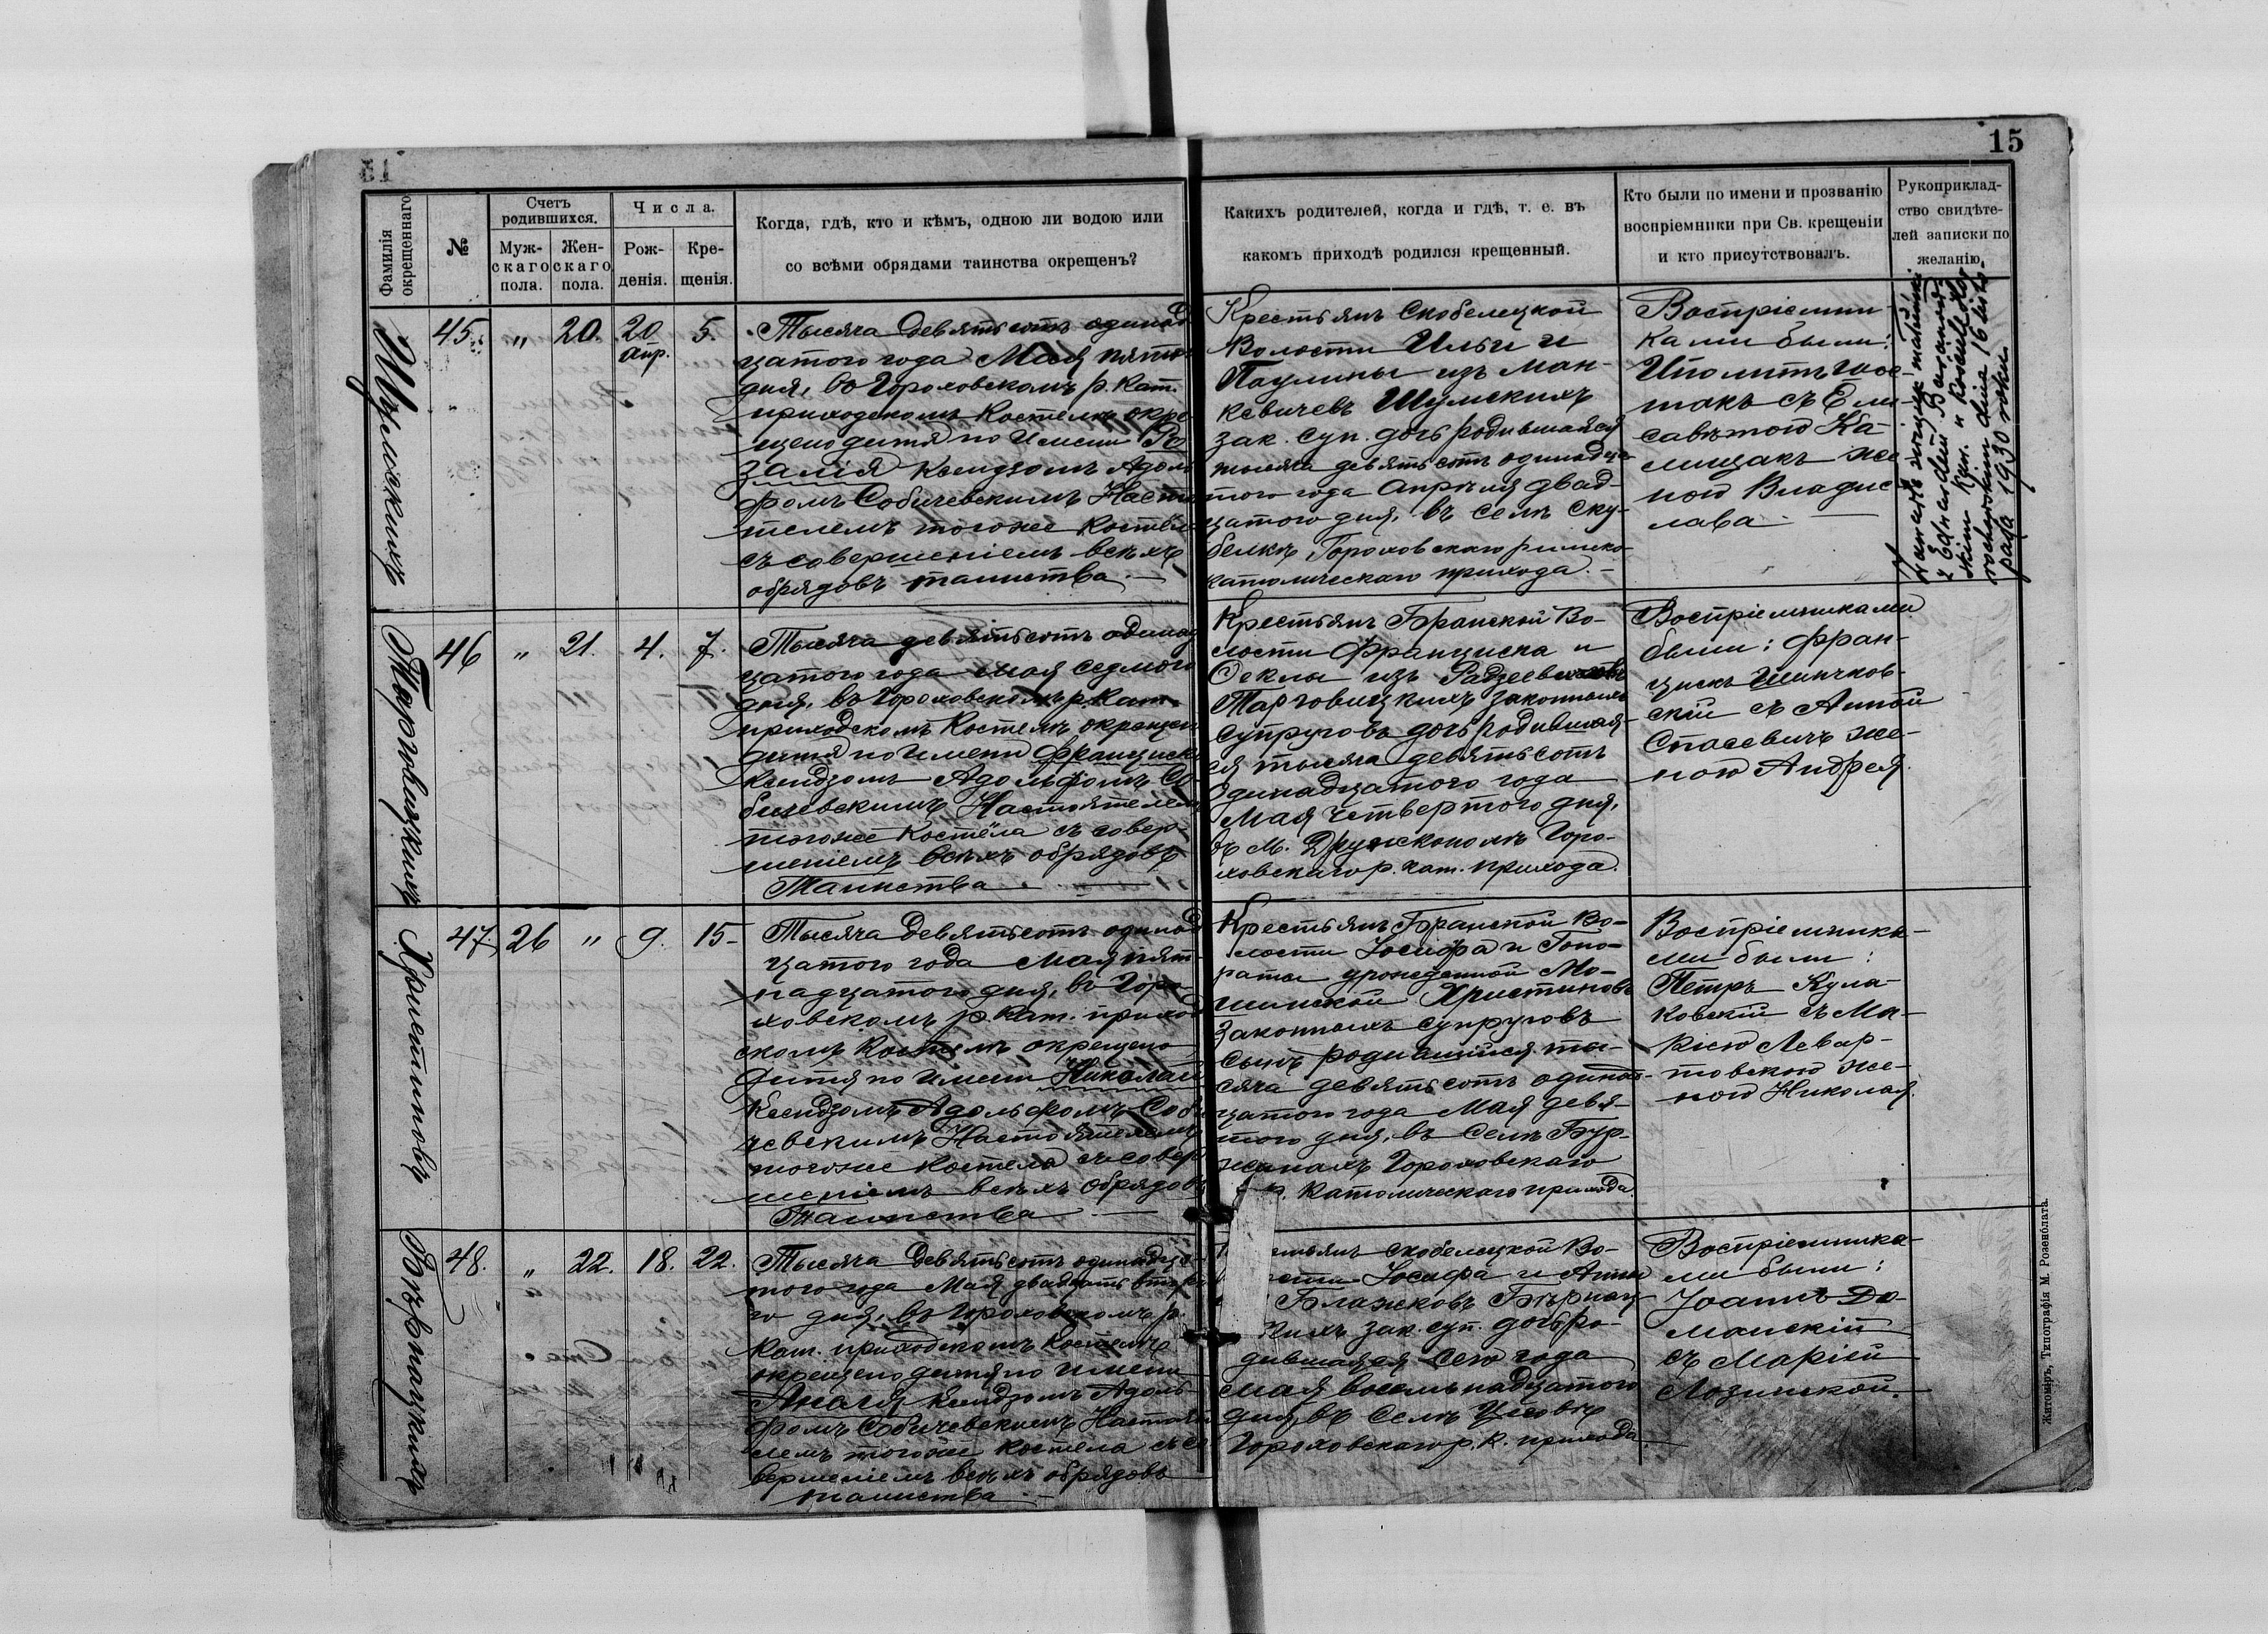 15
Фамилія окрещеннаго
№
Счетъ родившихся.
Мужскаго пола.
Женскаго пола.
Числа.
Рожденія.
Крещенія.
Когда, гдѣ, кто и кѣмъ, одною ли водою или
со всѣми обрядами таинства окрещенъ?
Какихъ родителей, когда и гдѣ, т. е. въ
какомъ приходѣ родился крещенный.
Кто были по имени и прозванію
воспріемники при Св. крещеніи
и кто присутствовалъ.
Рукоприклад-
ство свидѣте-
лей записки по
желанію.
Шумскихъ
45.
"
20.
20 апр.
5.
Тысяча девятьсотъ одинад
цатого года Мая пятого
дня, во Гороховскомъ р. кат.
приходскомъ Костелѣ окре
щено дитя по имени Ро
залія Ксендзомъ Адоль
фомъ Собичевскимъ Насто
телемъ тогоже Костёла
съ совершеніемъ всѣхъ
обрядовъ таинства. —
Крестьянъ Скобелецкой
Волости Ильи и
Паулины изъ Ман-
кевичевъ Шумскихъ
зак. суп. дочь родившаяся
тысяча девятьсотъ одинадца
того года Апрѣля двад-
цатого дня, въ селѣ Ску-
белкѣ Гороховскаго римско
католическаго прихода. —
Воспріемни
ками были:
Иполитъ
съ Ели-
саветою Ка-
лищакъ же
ною Владис
лава —
zawarła związek małżeński
z Edwardem
1930 roku
Торговицкихъ
46
"
21.
4.
7.
Тысяча девятьсотъ одинад
цатого года мая седмого
дня, во Гороховскомъ р. кат.
приходскомъ Костелѣ окрещен
дитя по имени Франциска
Ксендзомъ Адольфомъ Со
бичевскимъ Настоятелем
тогоже Костёла съ совер-
шеніемъ всѣхъ обрядовъ
Таинства. —
Крестьянъ Бранской Во-
лости Франциска и
Феклы изъ Радзеевичовъ
Тарговицкихъ законныхъ
супруговъ дочь родившая-
ся тысяча девятьсотъ
одинадцатого года
Мая четвертого дня,
въ м. Дружкополѣ Горо-
ховскаго р. кат. прихода.
Воспріемниками
были: Фран-
цискъ Шинчков-
скій съ Анной
Стасевичъ же-
ною Андрея.
Христиновъ
47
26
"
9.
15-
Тысяча девятьсотъ одинад
цатого года Мая пят
надцатого дня, во Горо
ховскомъ р. кат. приход
скомъ Костелѣ окрещено
дитя по имени Николай
Ксендзомъ Адольфомъ Соби
чевскимъ Настоятелемъ
тогоже Костела съ совер
шеніемъ всѣхъ обрядовъ
Таинства. —
Крестьянъ Бранской Во-
лости Іосифа и Гоно-
раты урожденной Мо-
шинской Христиновъ
Законныхъ супруговъ
сынъ родившійся ты-
сяча девятьсотъ одинад-
цатого года Мая девя-
того дня, въ селѣ Бур-
жанахъ Гороховскаго
р. Католическаго прихода.
Воспріемника-
ми были:
Петръ Кула-
ковскій съ Ма-
ріею Левар-
товскою же-
ною Николая.
48.
"
22.
18.
22.
Тысяча девятьсотъ одинадца-
того года Мая двадцать втор
го дня, во Гороховскомъ р.
кат. приходскомъ костелѣ
окрещено дитя по имени
Анеля Ксендзомъ Адоль-
фомъ Собичевскимъ Настояте
лемъ тогоже костела съ со
вершеніемъ всѣхъ обрядовъ
таинства. —
стьянъ Скобелецкой Во-
ости Іосифа и Анны
Блажковъ Бѣрнац
кихъ зак. суп. дочь ро-
дившаяся сего года
мая восемьнадцатого
дня, въ селѣ
Гороховскаго р. к. прихода.
Воспріемника-
ми были:
Іоаннъ До-
манскій
съ Маріей
Лозинской.
Житоміръ, Типографія М. Розенблата.